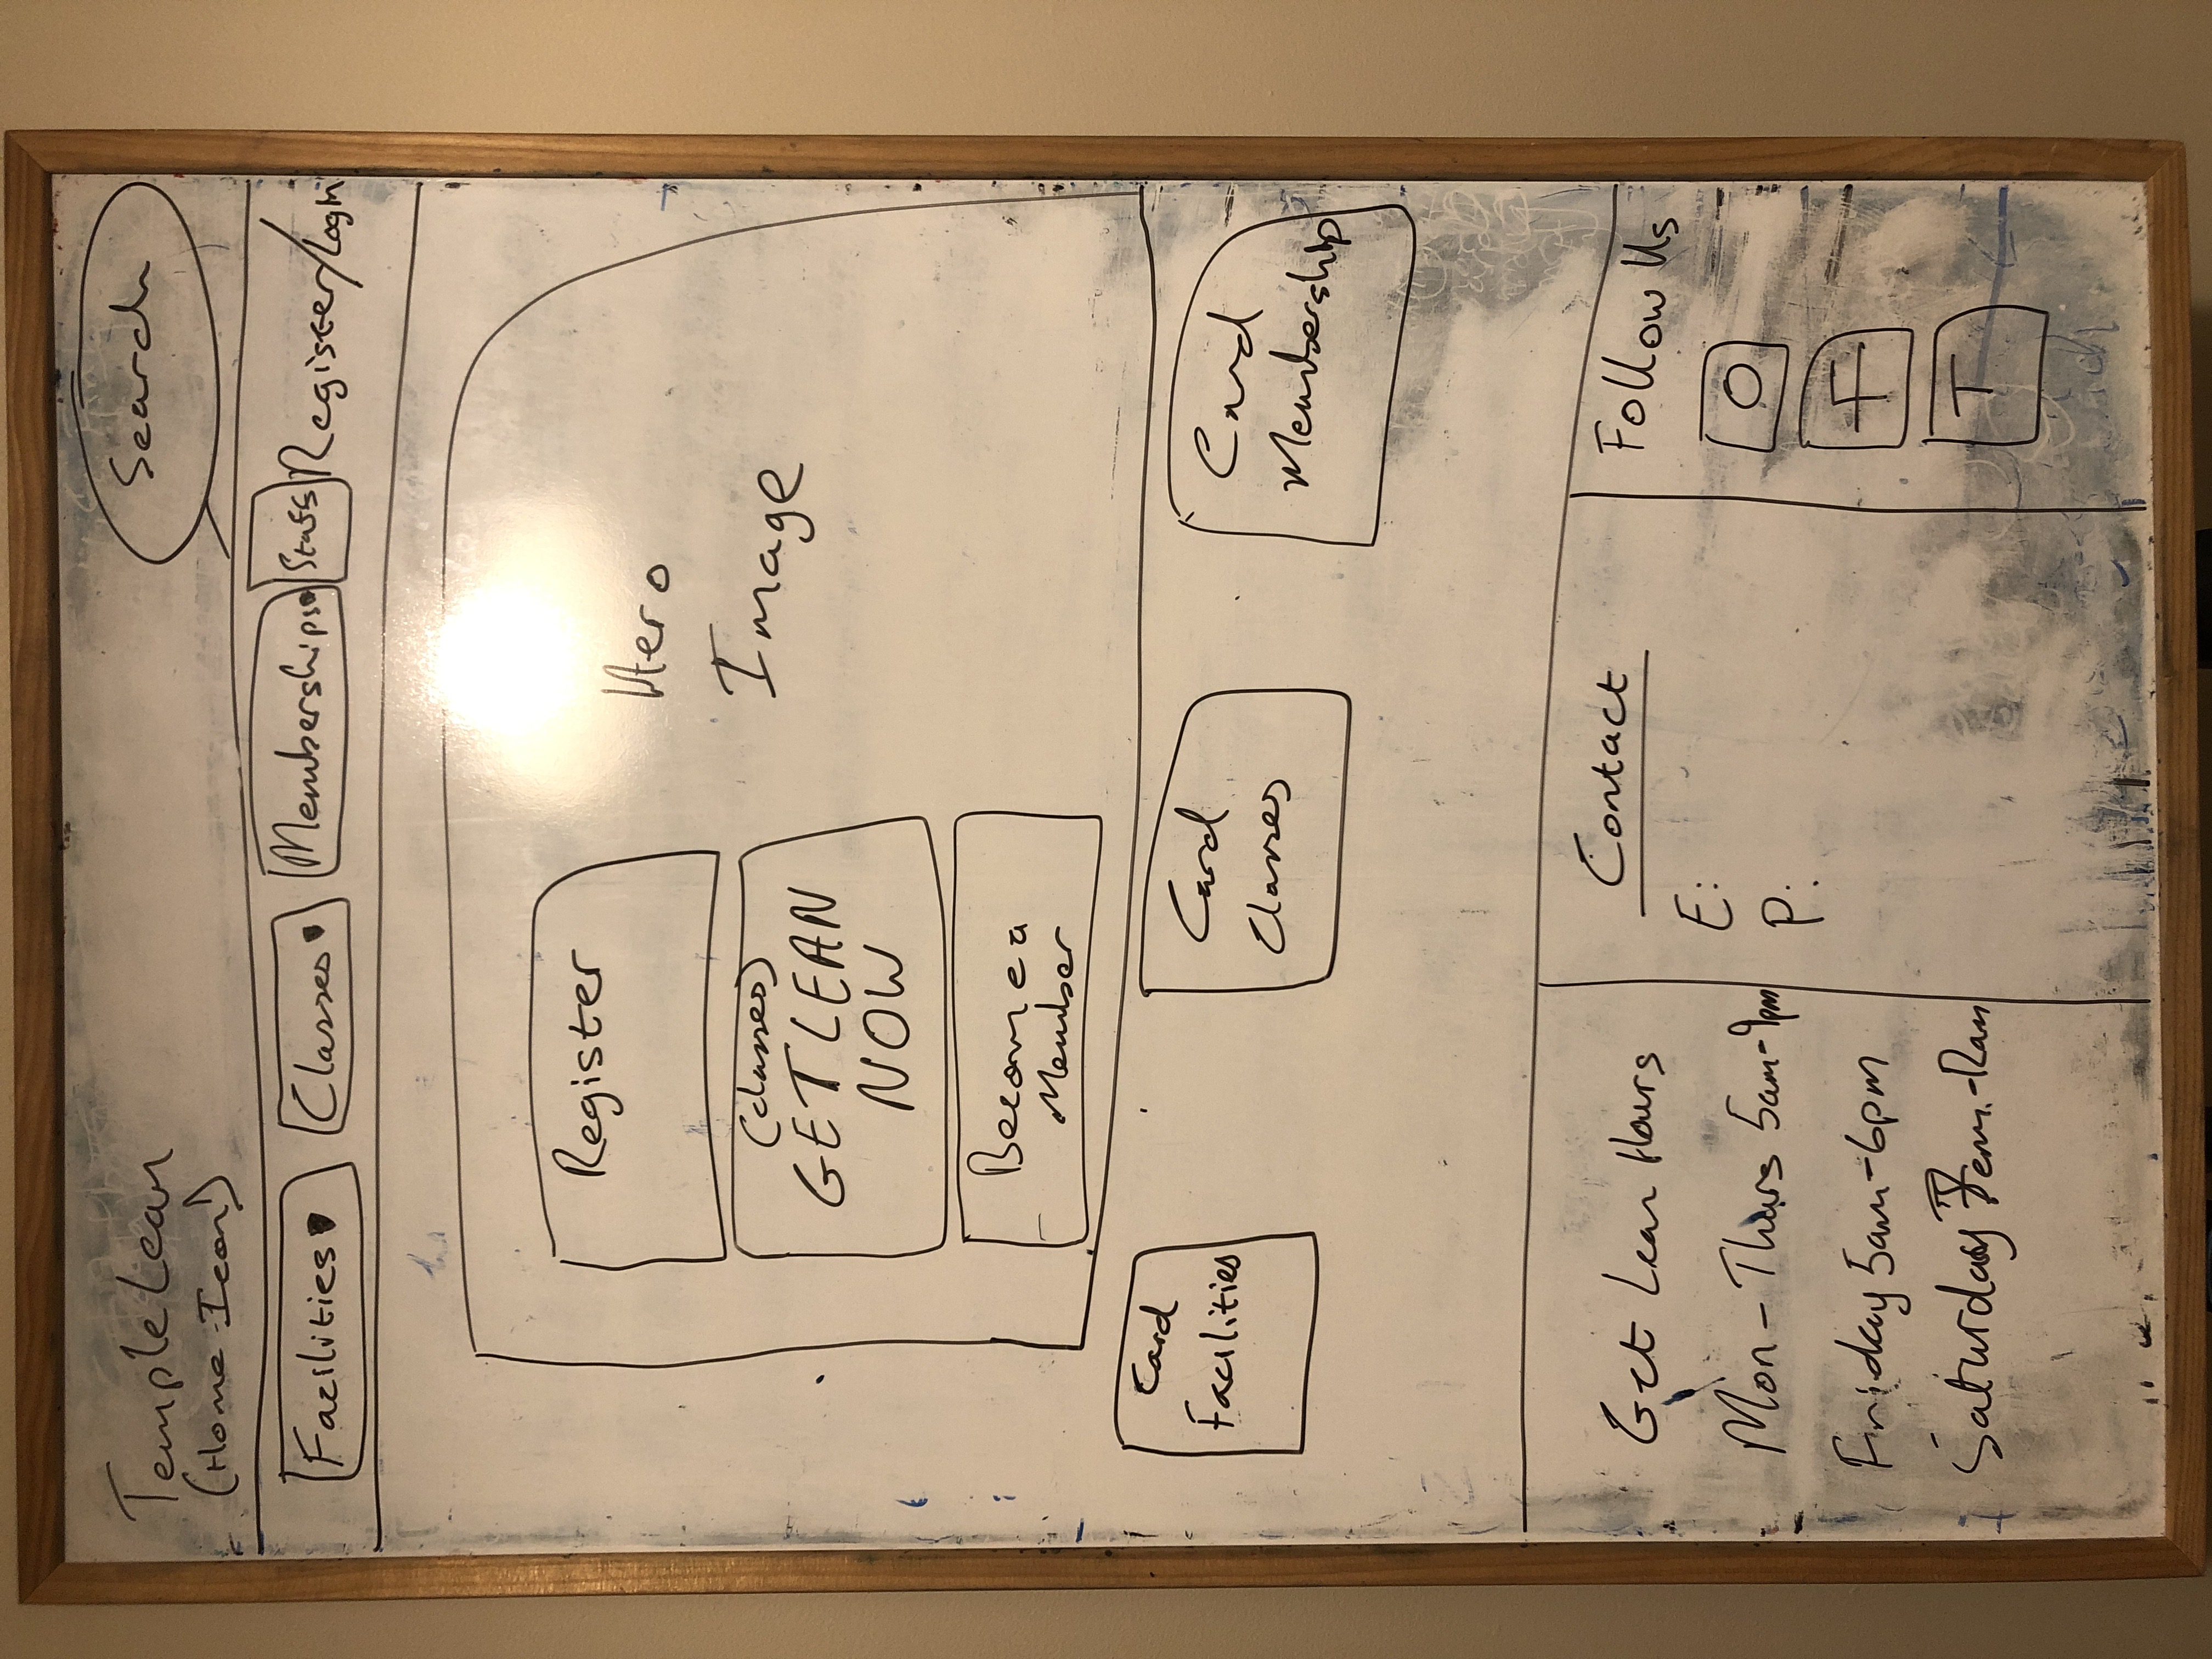 Temple Lean
(Home Icon)
Search
Facilities
Classes
Memberships
Staff
Register/Login
Register
(classes)
GET LEAN
NOW
Become a
Member
Hero
Image
Card
Facilities
Card
Classes
Card
Membership
Get Lean Hours
Mon - Thurs 5am-9pm
Friday 5am-6pm
Saturday
Contact
E:
P:
Follow Us
O
F
T